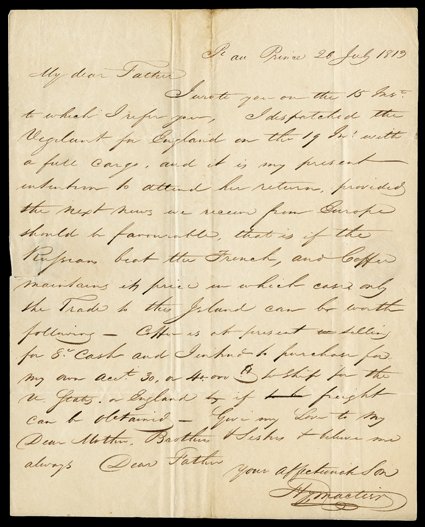 Pt au Prince 26 July 1813
My dear Father
I wrote you on the 15 Inst
to which I refer you, I dispatched the
Vigilant for England on the 19 Int with
a full cargo, and it is my present
intention to attend her return, provided
the next news we receive from Europe
should be favourable, that is if the
Russians beat the French, and Coffee
maintains its price in which case only
the Trade to this Island can be worth
following - Coffee is at present selling
for Cash and I intend to purchase for
my own acct 30, or 40,000 & ship for the
U. States. or England if freight
can be obtained - Give my Love to My
Dear Mother, Brothers & Sisters & believe me
always Dear Father
your affectionate Son